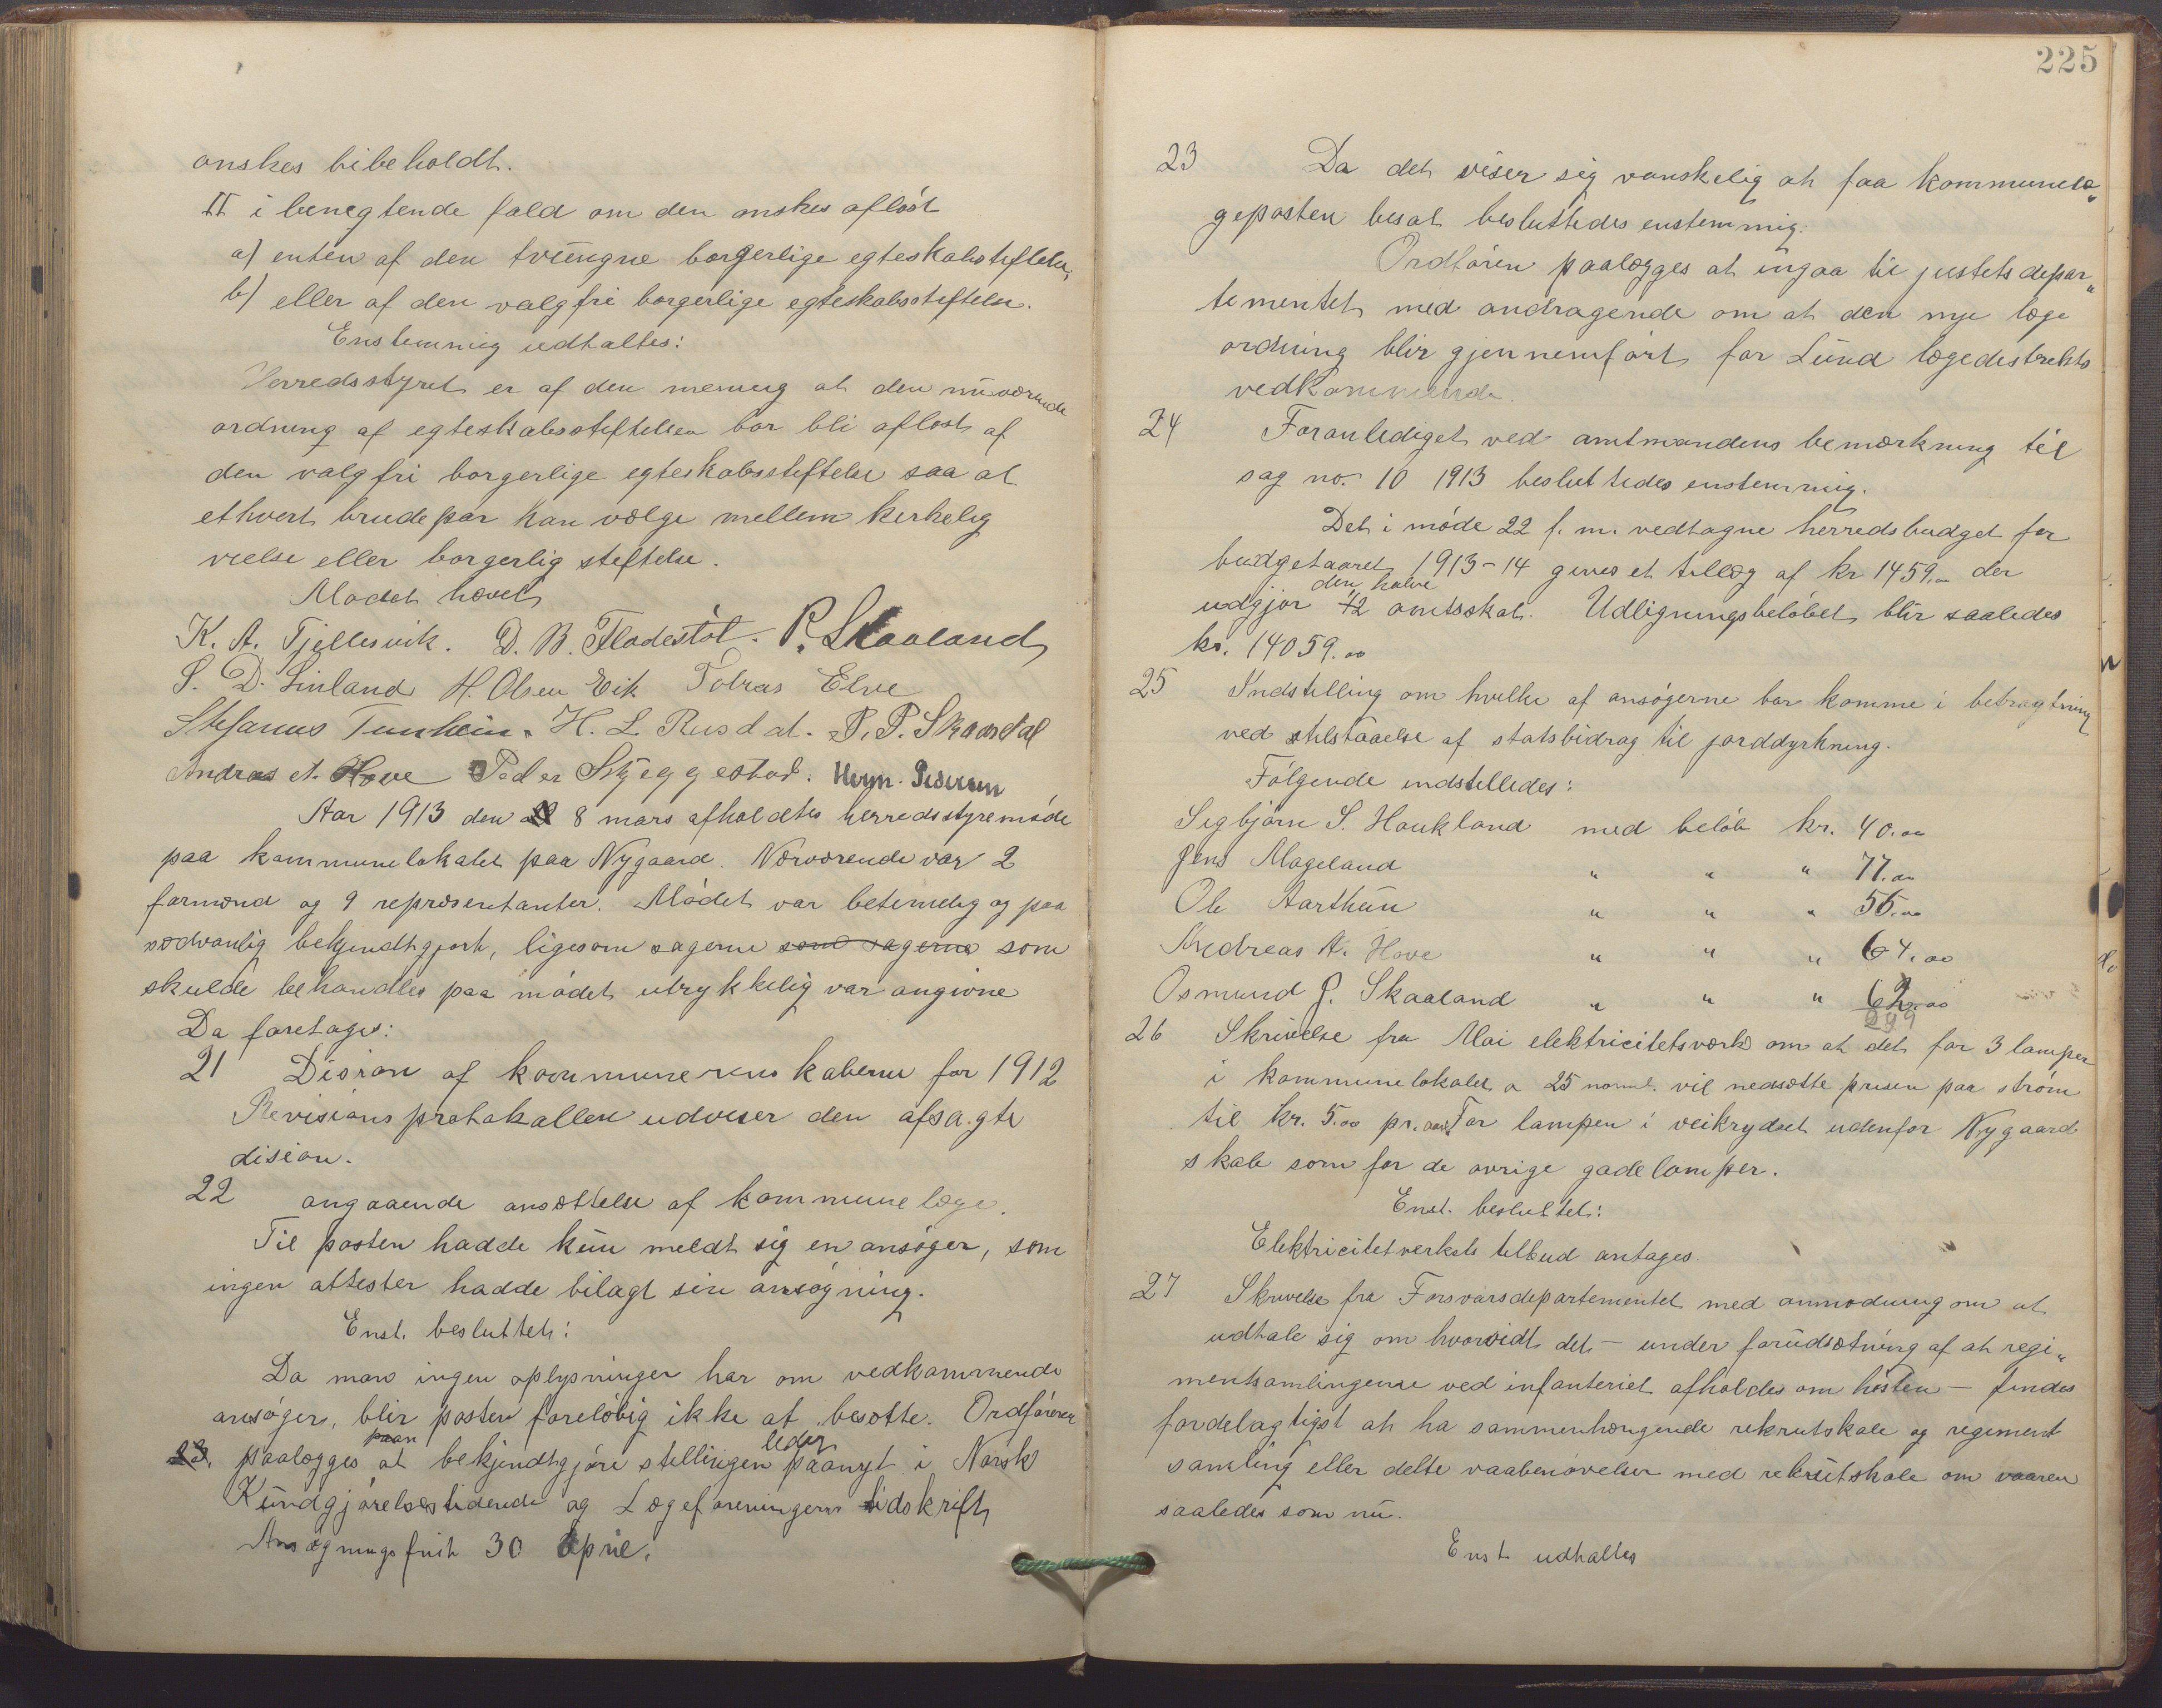 ønskes bibeholdt.
II i benegtende fald om den ønskes afløst
a) enten af den tvungne borgerlige egteskabstiftelse,
b) eller af den valgfri borgerlige egteskabsstiftelse.
Enstemmig udtaltes:
Herredsstyret er af den mening at den nuværende
ordning af egteskabsstiftelsen bør bli afløst af
den valgfri borgerlige egteskabsstiftelse saa at
ethvert brudepar kan vælge mellem kirkelig
vielse eller borgerlig stiftelse.
Mødet hævet
K. A. Tjellesvik. D. B. Fladestøl. P. Skaaland
S. D. Linland H. Olsen Eik Tobias Elve
Stefanus Tunheim. H. L. Rusdal. P. P. Skaardal
Andreas A. Hove Peder Skjeggestad. Herm. Pedersen
Aar 1913 den 8 mars afholdtes herredsstyremøde
paa kommunelokalet paa Nygaard. Nærværende var 2
formænd og 9 repræsentanter. Mødet var betimelig og paa
sædvanlig bekjendtgjort, ligesom sagerne som sagerne som
skulde behandles paa mødet utrykkelig var angivne
Da foretoges:
21 Disiron af kommunerenskaberne for 1912
Revisionsprotokollen udviser den afsagte
dision.
22 angaaende ansættelse af kommunelæge.
Til posten hadde kun meldt sig en ansøger, som
ingen attester hadde bilagt sin ansøgning.
Enst. besluttet:
Da man ingen oplysninger har om vedkommende
ansøger, blir posten foreløbig ikke at besætte. Ordføreren
23. paalægges at bekjendtgjøre stillingen ledig paanyt i Norsk
Kundgjørelsestidende og Lægeforeningens tidskrift
Ansøgningsfrist 30 april.
225
23 Da det viser sig vanskelig at faa kommunelæ„
geposten besat besluttedes enstemmig:
Ordføren paalægges at ingaa til justetsdepar„
tementet med andragende om at den nye læge
ordning blir gjennemført for Lund lægedestrekts
vedkommende.
24 Foranlediget ved amtmandens bemærkning til
sag no. 10 1913 besluttedes enstemmig.
Det i møde 22 f. m. vedtagne herredsbudget for
budgetaaret 1913-14 gives et tillæg af kr 1459.00 der
den halve
udgjør 1/2 amtsskat. Udligningsbeløbet blir saaledes
kr. 14059.00
25 Indstilling om hvilke af ansøgerne bør komme i betragtning
ved tilstaaelse af statsbidrag til jorddyrkning.
Følgende indstilledes:
Segbjørn S. Haukland med beløb kr. 40.00
Jens Mageland " " " 77.00
Ole Aarthun " " " 56.00
Andreas A. Hove " " " 64.00
Osmund J. Skaaland " " " 62.00
299
26 Skrivelse fra Moi elektricitetsværk om at det for 3 lamper
i kommunelokalet a 25 norml. vil nedsætte prisen paa strøm
til kr. 5.00 pr. aar. For lampen i veikrydset udenfor Nygaard
skole som for de øvrige gadelamper.
Enst. besluttet:
Elektricitetverkets tilbud antages.
27 Skrivelse fra Forsvarsdepartementet med anmodning om at
udtale sig om hvorvidt det – under forudsætning af at regi„
mentsamlingene ved infanteriet afholdes om høsten – findes
fordelagtigst at ha sammenhængende rekrutskole og regiment
samling eller delte vaabenøvelser med rekrutskole om vaaren
saaledes som nu.
Enst udtaltes